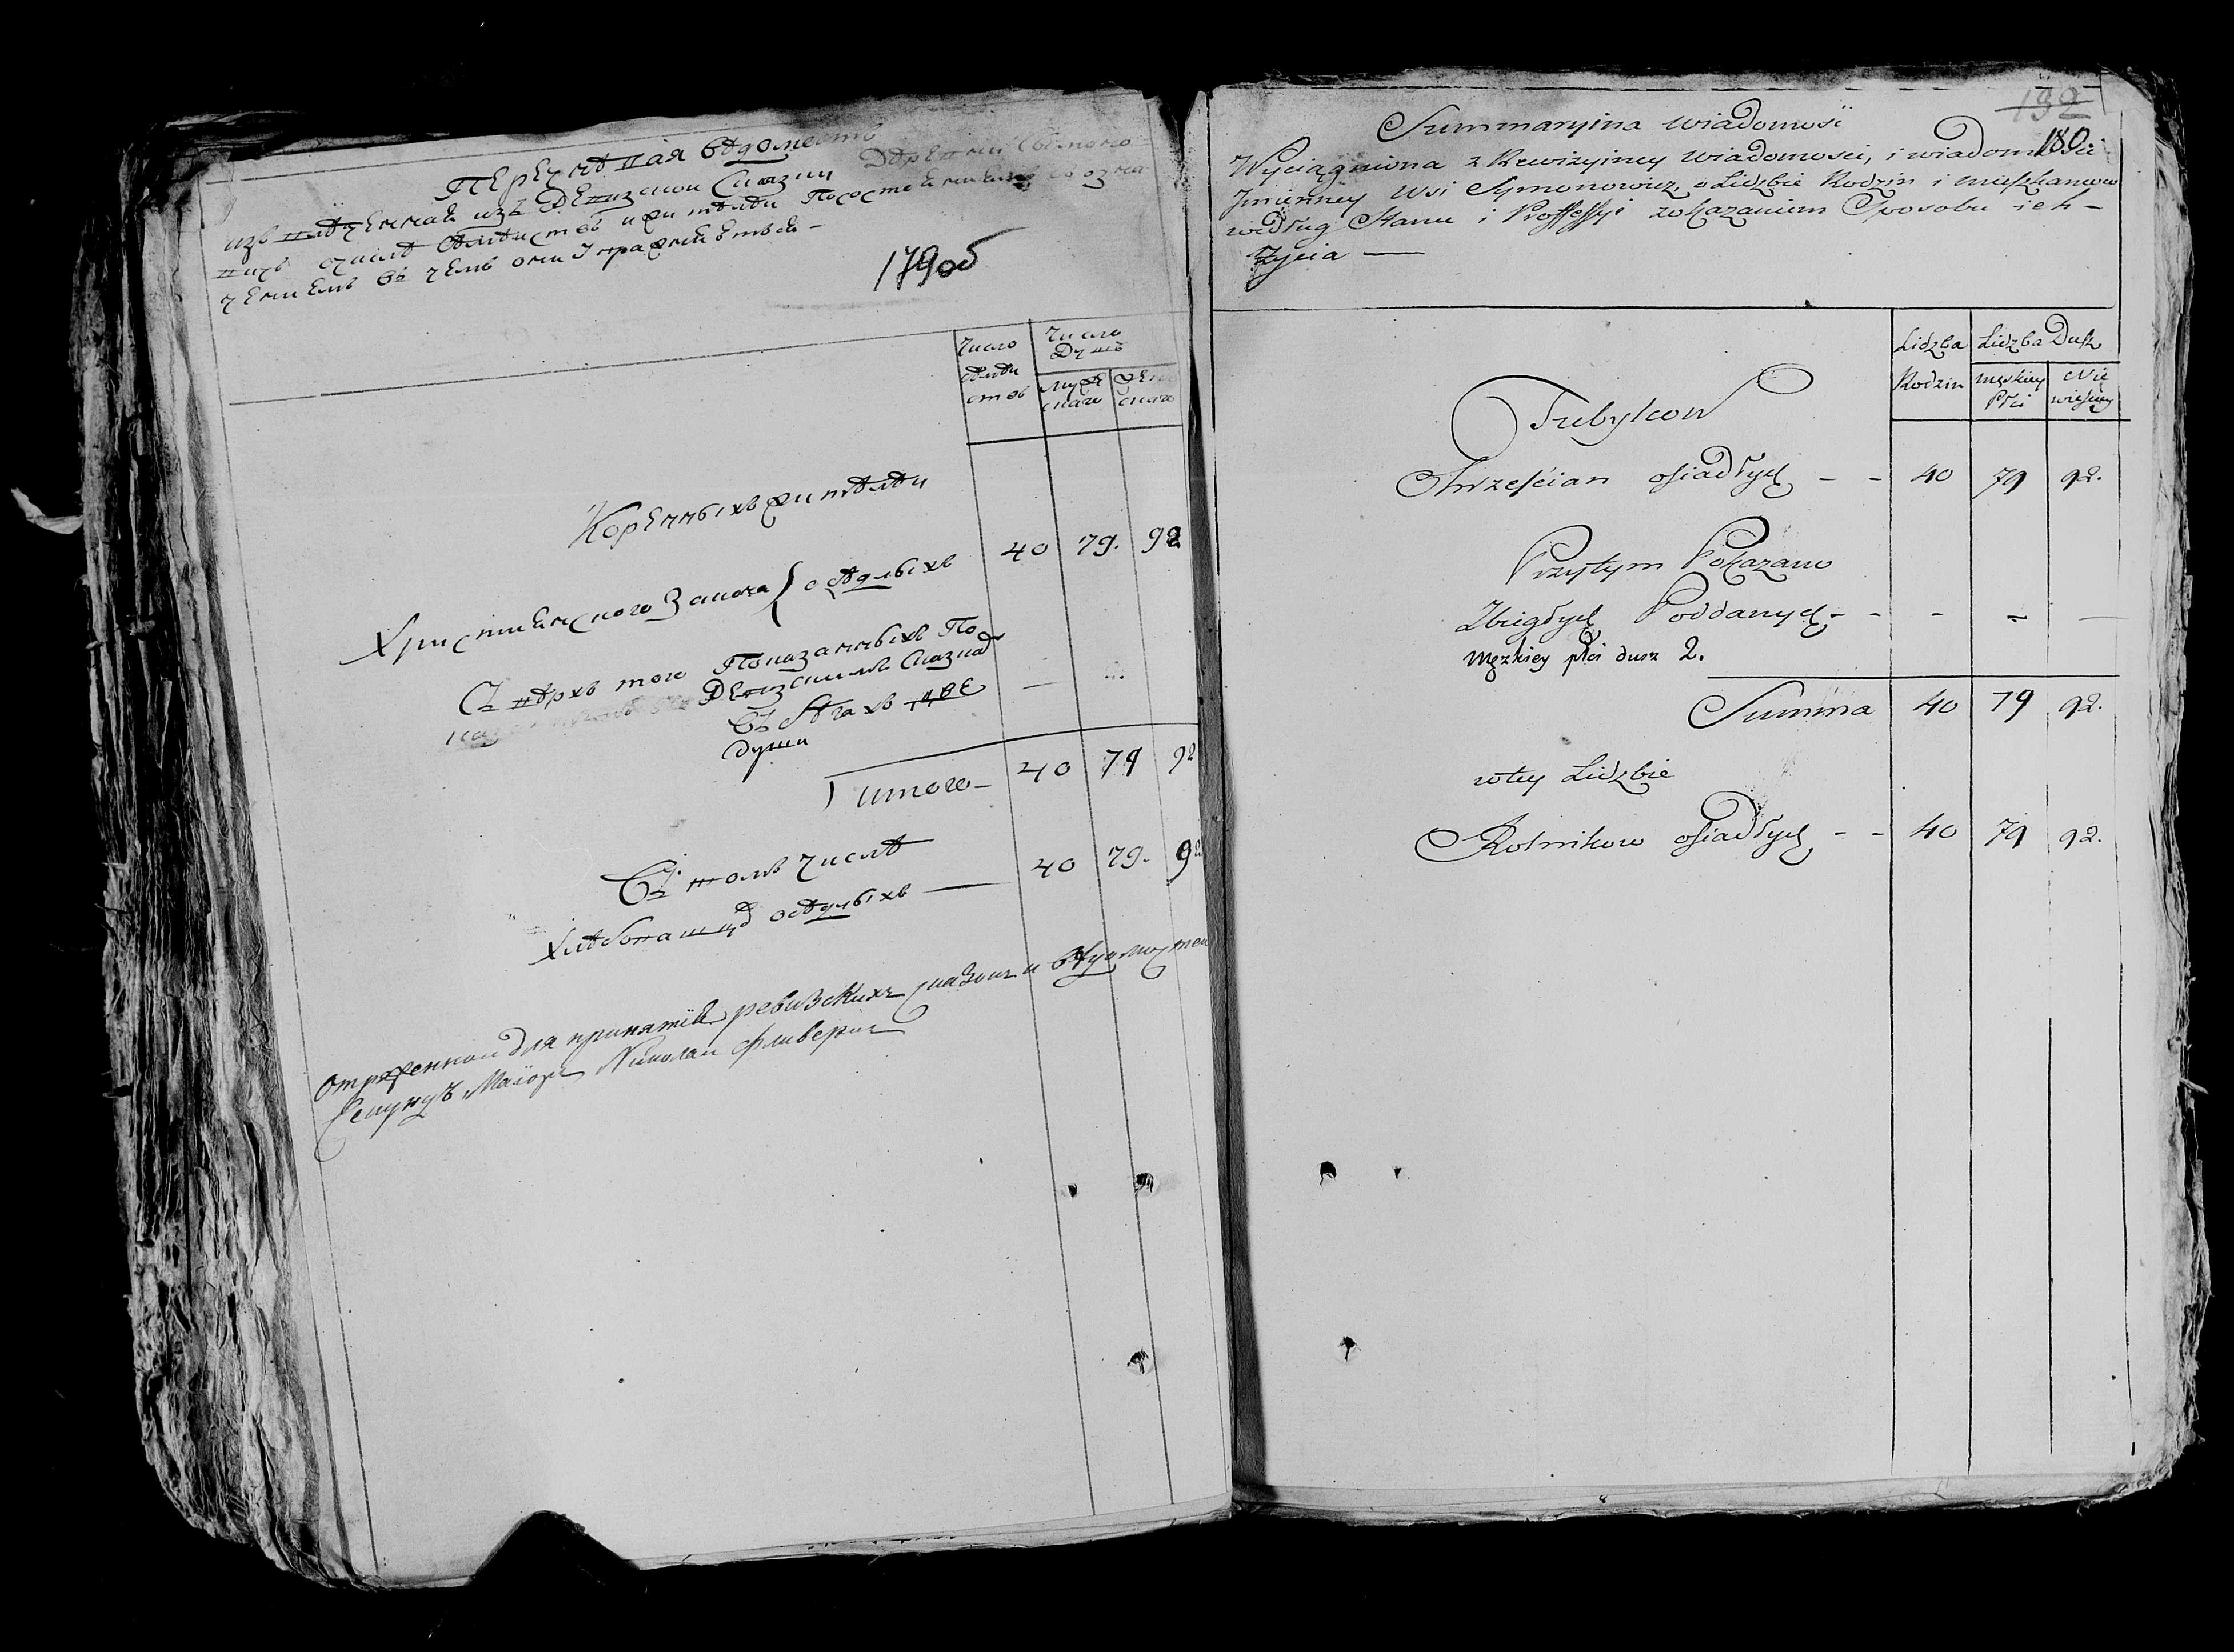 Перечнѣвая вѣдомость
извлѣченная изъ Ревизской Сказки Деревни Симоно
вичь о числѣ семействъ и жителей по состояниямъ съ озна
чениемъ въ чемъ они упражняются
179об
Число семействъ
Число душъ
мужескаго
женскаго
Коренныхъ жителей
Христианского Закона осѣдлыхъ 40 79. 92
Съ верхъ того Показанныхъ По
Ревизскимъ Сказкамъ
Въ бѣгахъ двѣ —
души
итого 40 79 92
Въ томъ числѣ
Хлѣбопашцовъ осѣдлыхъ — 40 79. 92
Отряженной для принятия ревизскихъ сказокъ и вѣдомостей
Секундъ Маіоръ Николай
192
180.
Summaryina Wiadomość
Wyciągniona z Rewizyiney Wiadomosci, i wiadomosci
Jmienney Wsi Symonowicz, o Lidzbie Rodzin i mieszkancow
według Stanu i Professyi zokazaniem Sposobu ich-
Zycia —
Lidzba Rodzin
Lidzba Dusz
męskiey Płci
Nie wieskiey
Tubylcow
Chrzescian osiadłych - - 40 79 92.
Przytym Pokazano
Zbiegłych Poddanych - - - - —
Męzkiey płci dusz 2.
Summa 40 79 92.
w tey Lidzbie
Rolnikow osiadłych - - 40 79 92.